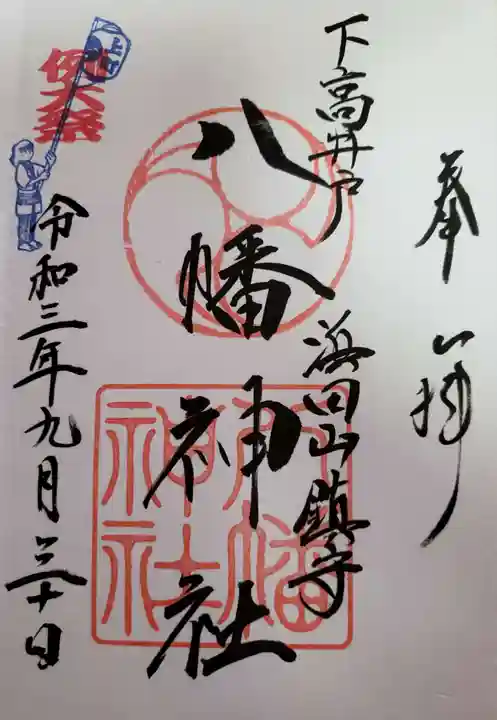 奉拝
下高井戸
浜田山鎮守
八幡神社
八幡神社
例大祭
令和三年九月三十日